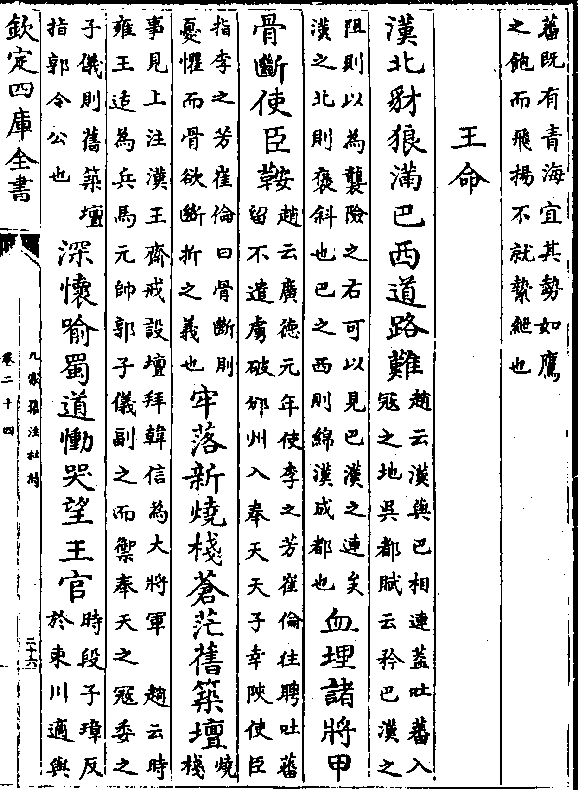 蕃既有青海宜其勢如鷹
之飽而飛揚不就縶紲也
王命
漢北豺狼滿巴西道路難
趙云漢與巴相連蓋吐蕃入
冦之地吳都賦云矜巴漢之
阻則以為襲險之右可以見巴漢之連矣
漢之北則褒斜也巴之西則綿漢成都也
血埋諸將甲
骨斷使臣鞍
趙云廣徳元年使李之芳崔倫往聘吐蕃
留不遣虜破邠州入奉天天子幸陜使臣
指李之芳崔倫曰骨斷則
憂懼而骨欲斷折之義也
牢落新燒棧蒼茫舊築壇
燒
棧
事見上注漢王齋戒設壇拜韓信為大將軍 趙云時
雍王适為兵馬元帥郭子儀副之而禦奉天之冦委之
子儀則舊築壇
指郭令公也
深懷喻蜀道慟哭望王官
時段子璋反
於東川適與
欽定四庫全書
九家集注杜詩
卷二十四
二十六